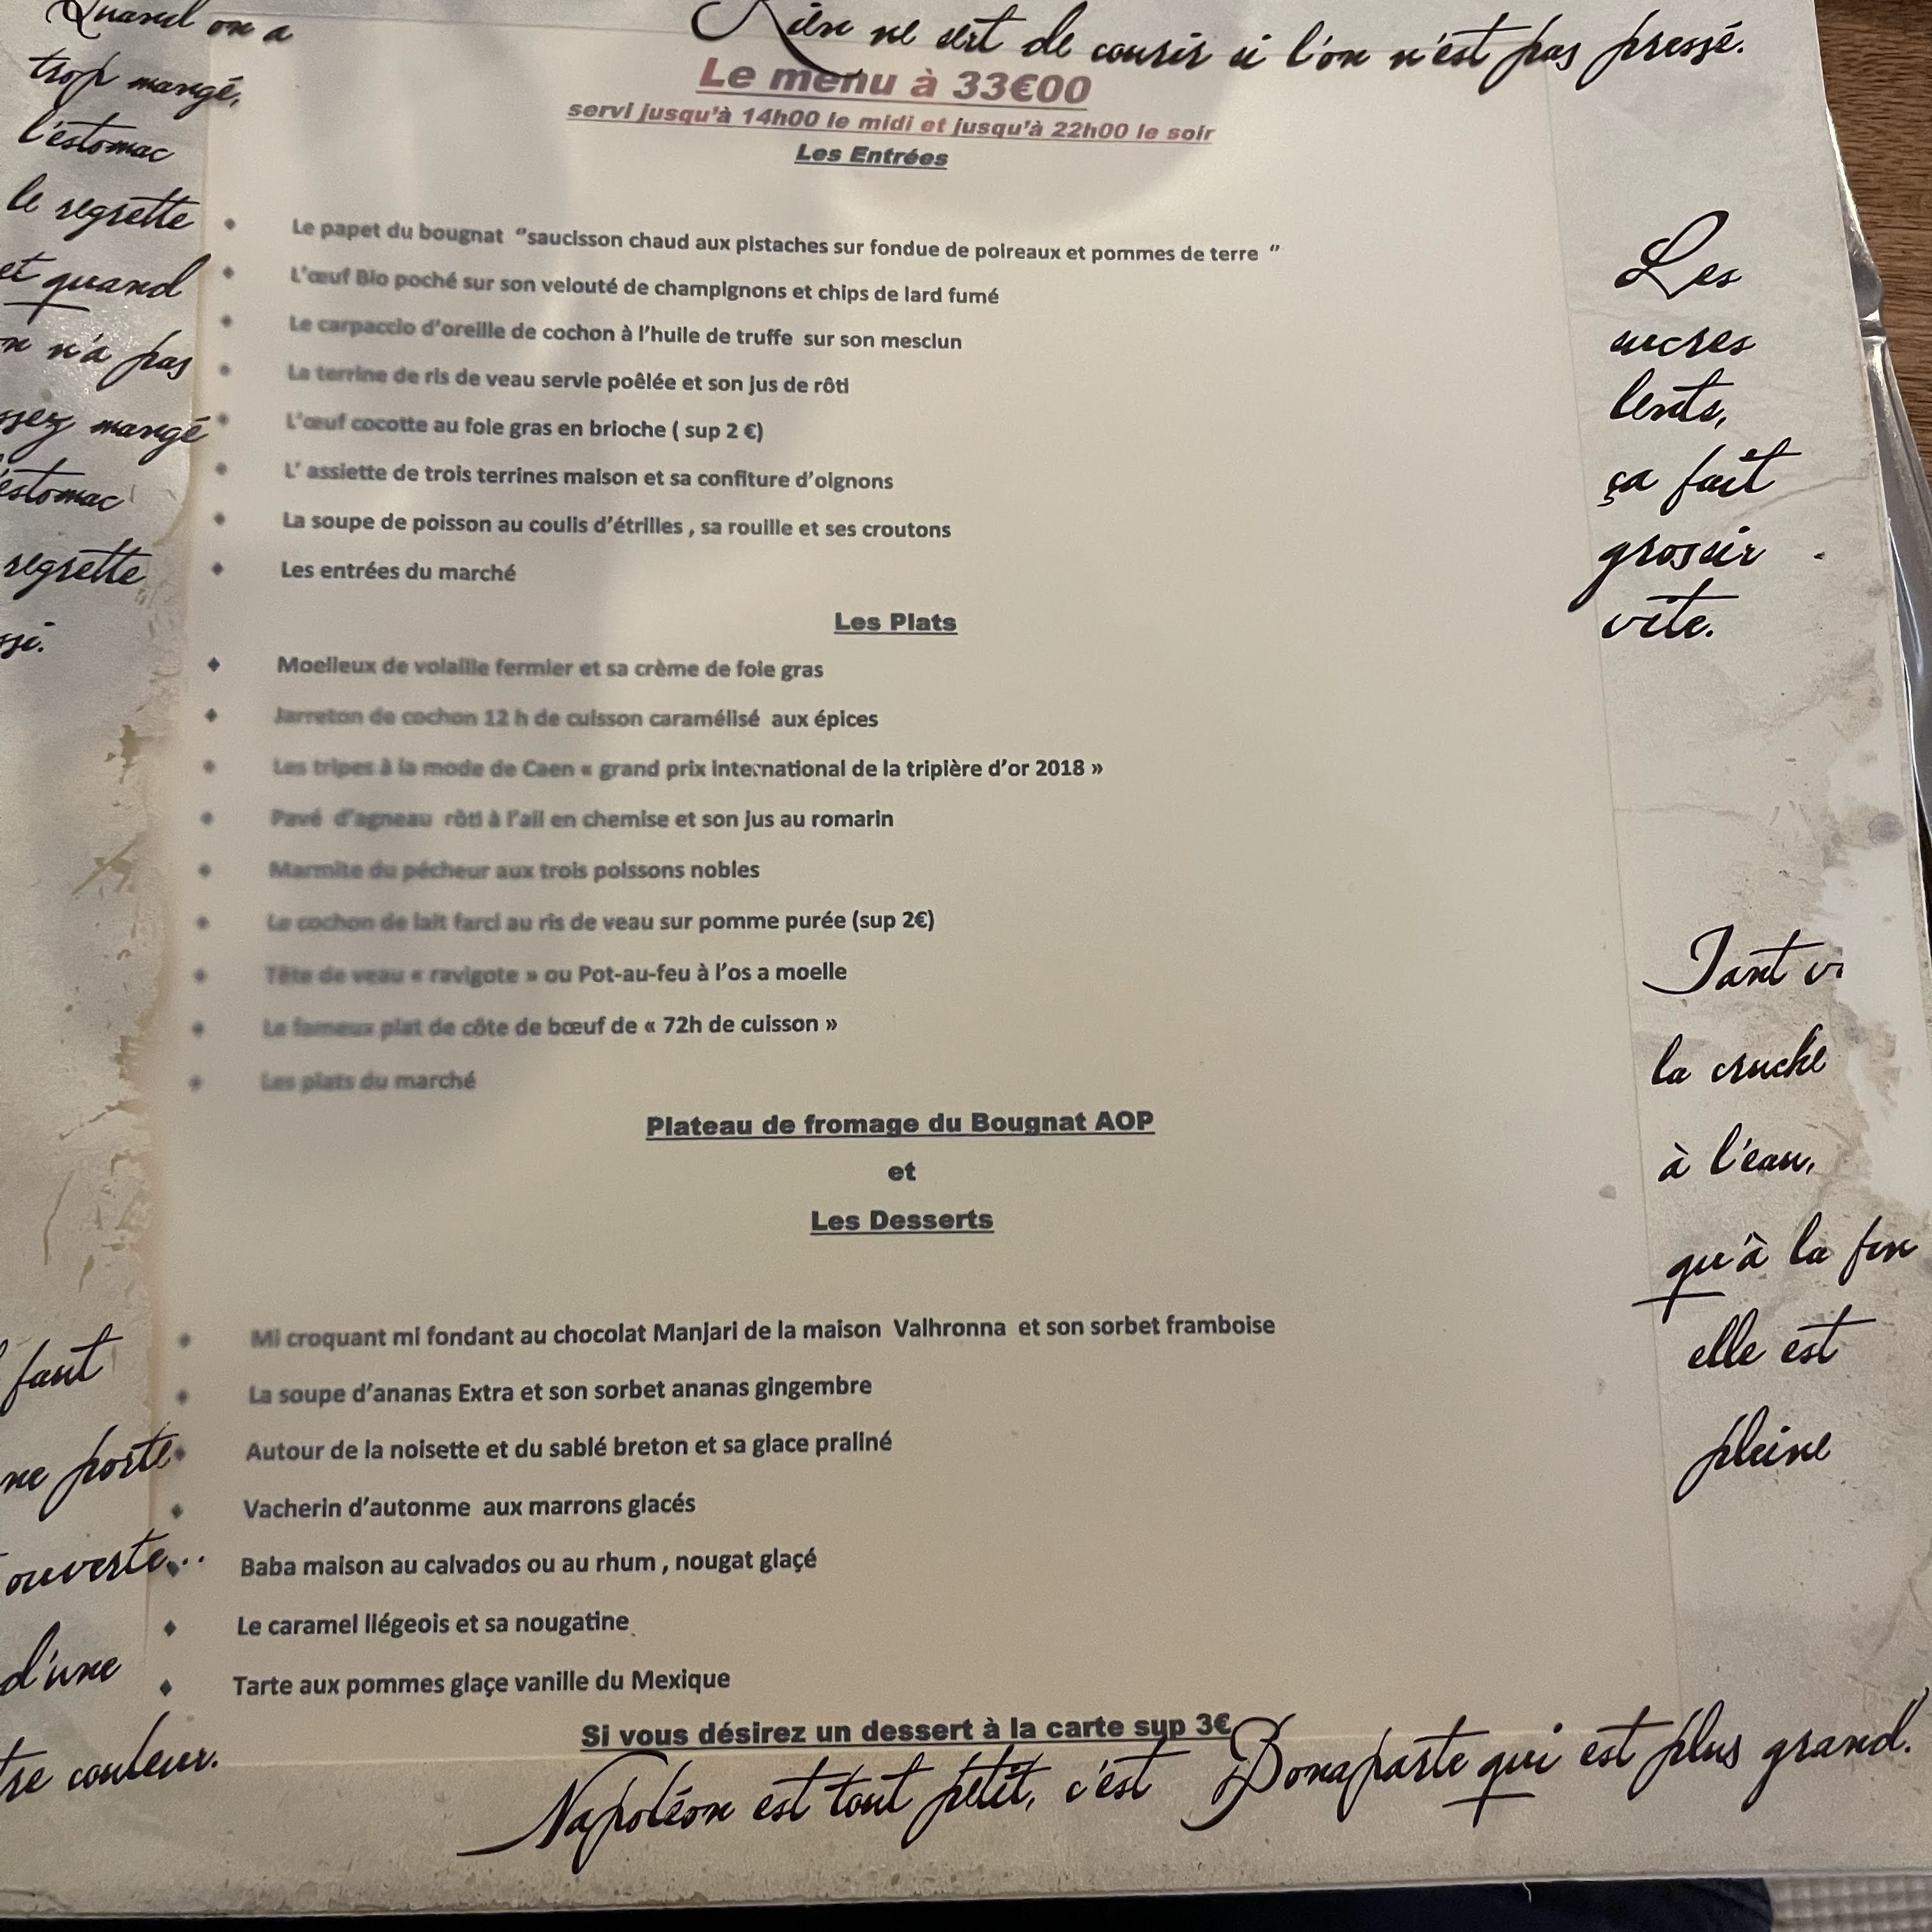 Rien ne sert de courir si l'on n'est pas pressé.
Quand on a
trop mangé,
l'estomac
le regrette
et quand
n n'a pas
ssez mangé
estomac
regrette
ssi.
Le menu à 33€00
servi jusqu'à 14h00 le midi et jusqu'à 22h00 le soir
Les Entrées
Le papet du bougnat "saucisson chaud aux pistaches sur fondue de poireaux et pommes de terre "
L'œuf Bio poché sur son velouté de champignons et chips de lard fumé
Le carpaccio d'oreille de cochon à l'huile de truffe sur son mesclun
La terrine de ris de veau servie poêlée et son jus de rôti
L'œuf cocotte au foie gras en brioche ( sup 2 €)
L' assiette de trois terrines maison et sa confiture d'oignons
La soupe de poisson au coulis d'étrilles , sa rouille et ses croutons
Les entrées du marché
Les Plats
Moelleux de volaille fermier et sa crème de foie gras
Jarreton de cochon 12 h de cuisson caramélisé aux épices
Les tripes à la mode de Caen « grand prix international de la tripière d'or 2018 »
Pavé d'agneau rôti à l'ail en chemise et son jus au romarin
Marmite du pécheur aux trois poissons nobles
Le cochon de lait farci au ris de veau sur pomme purée (sup 2€)
Tête de veau « ravigote » ou Pot-au-feu à l'os a moelle
Le fameux plat de côte de bœuf de « 72h de cuisson »
Les plats du marché
Plateau de fromage du Bougnat AOP
et
Les Desserts
Mi croquant mi fondant au chocolat Manjari de la maison Valhronna et son sorbet framboise
La soupe d'ananas Extra et son sorbet ananas gingembre
Autour de la noisette et du sablé breton et sa glace praliné
Vacherin d'autonme aux marrons glacés
Baba maison au calvados ou au rhum , nougat glaçé
Le caramel liégeois et sa nougatine
Tarte aux pommes glaçe vanille du Mexique
Si vous désirez un dessert à la carte sup 3€
Les
sucres
lents,
ça fait
grossir
vite.
Tant v
la cruche
à l'eau,
qu'à la fin
elle est
pleine
faut
ne porte
ouverte...
d'une
tre couleur.
Napoléon est tout petit, c'est Bonaparte qui est plus grand.